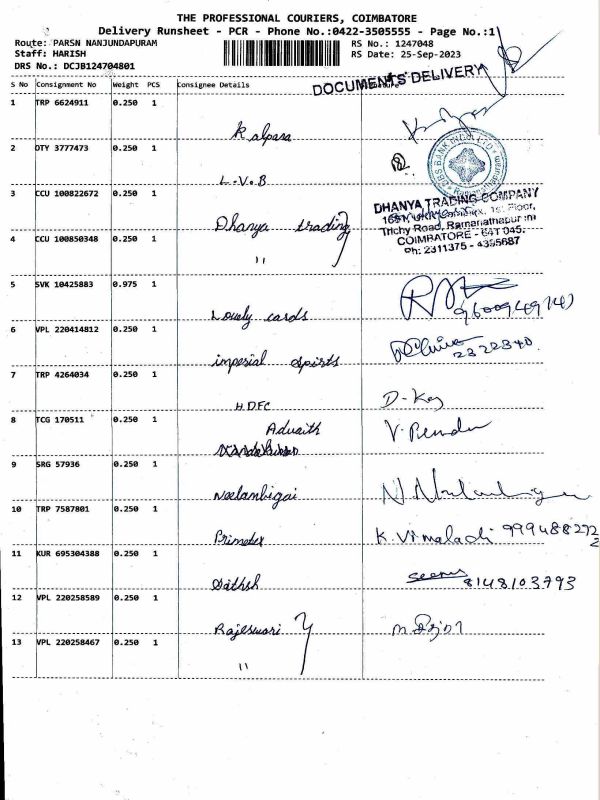 THE PROFESSIONAL COURIERS, COIMBATORE
Delivery Runsheet - PCR - Phone No.:0422-3505555 - Page No.:1
Route: PARSN NANJUNDAPURAM
RS No.: 1247048
Staff: HARISH
RS Date: 25-Sep-2023
DRS No.: DCJB124704801
DOCUMENTS DELIVERY
S No Consignment No Weight PCS Consignee Details
1 TRP 6624911 0.250 1
Kalpana
2 DTY 3777473 0.250 1
L.V.B
3 CCU 100822672 0.250 1
Dhanya trading
DHANYA TRADING COMPANY
Trichy Road, Ramanathapuram
COIMBATORE - 641 045.
Ph: 2311375 - 4395687
4 CCU 100850348 0.250 1
"
5 SVK 10425883 0.975 1
Lovely cards
6 VPL 220414812 0.250 1
imperial spirits
2322340.
7 TRP 4264034 0.250 1
HDFC
8 TCG 170511 0.250 1
Advaith
9 SRG 57936 0.250 1
Neelambigai
10 TRP 7587801 0.250 1
K. Vimaladi
11 KUR 695304388 0.250 1
Sathsh
8148103793
12 VPL 220258589 0.250 1
Rajeswari
13 VPL 220258467 0.250 1
"